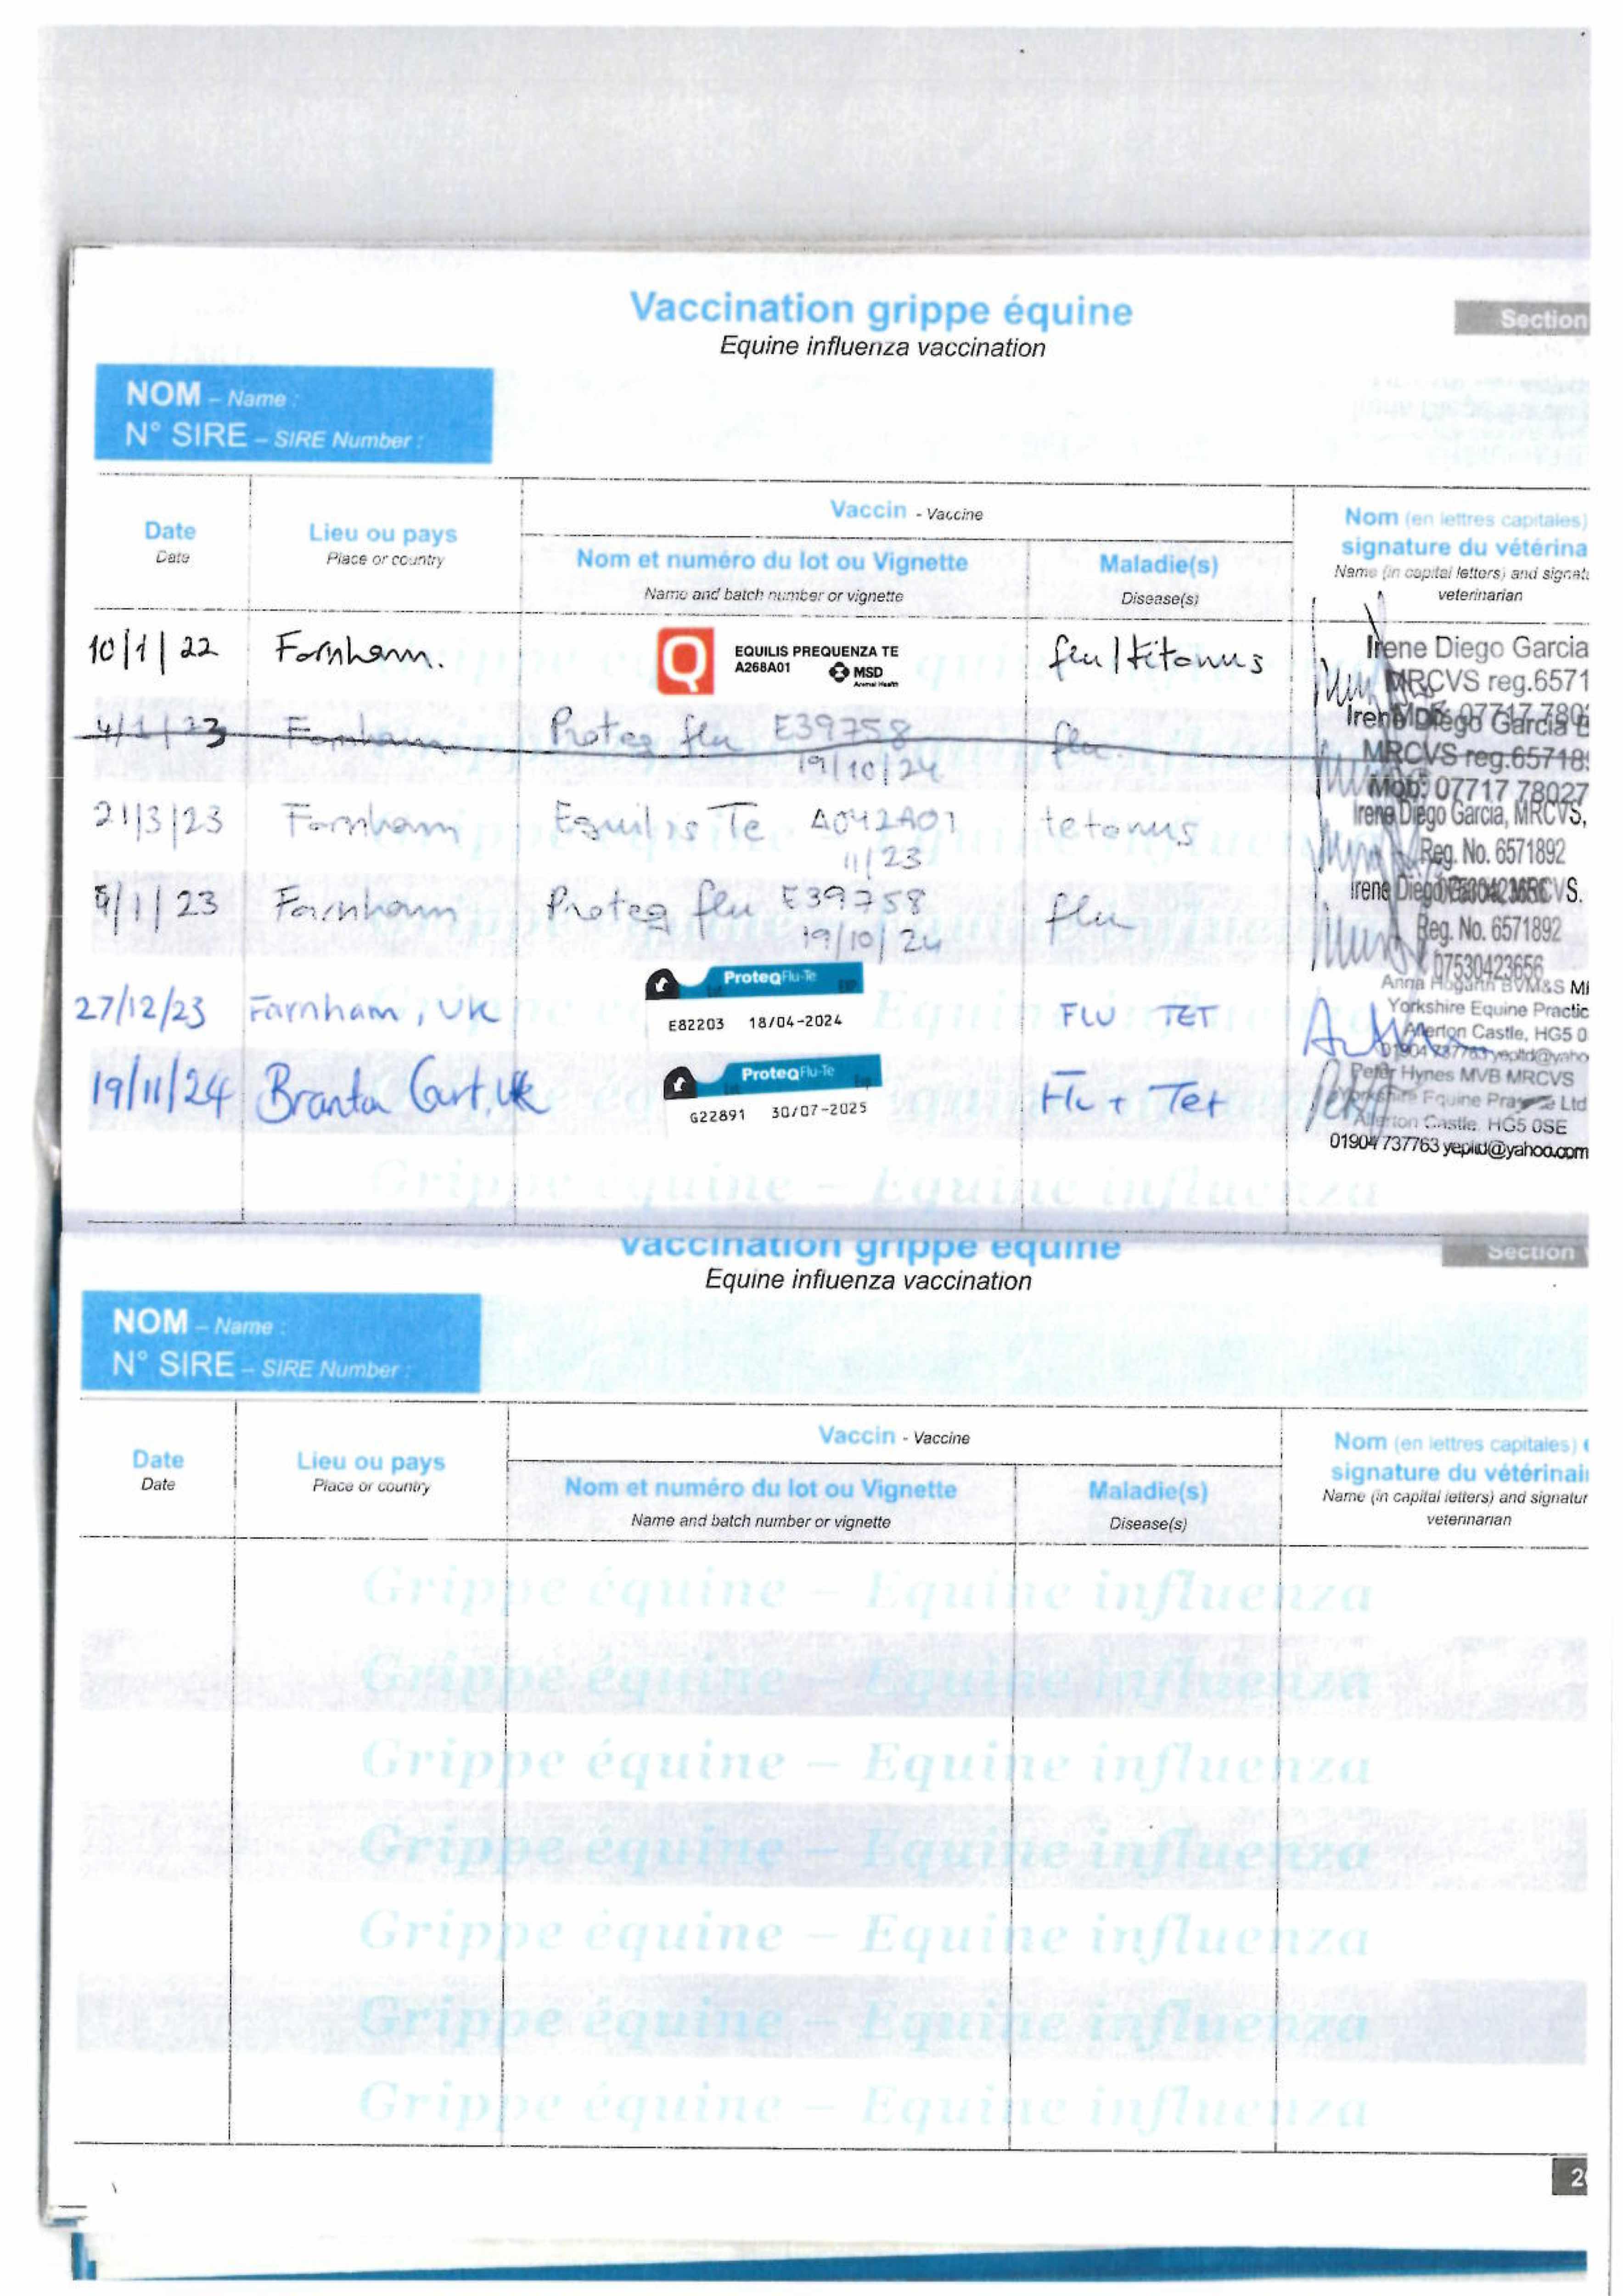 Vaccination grippe équine
Equine influenza vaccination
Section
NOM – Name :
N° SIRE – SIRE Number :
Date
Date
Lieu ou pays
Place or country
Vaccin - Vaccine
Nom et numéro du lot ou Vignette
Name and batch number or vignette
Maladie(s)
Disease(s)
Nom (en lettres capitales)
signature du vétérina
Name (in capital letters) and signatu
veterinarian
10/1/22 Farnham. Q EQUILIS PREQUENZA TE
A268A01 MSD
Animal Health
flu/titonus
Irene Diego Garcia
MRCVS reg.6571
Mob: 07717 780
4/1/23 Farnham Proteq flu E39758
19/10/24
flu.
Irene Diego Garcia B
MRCVS reg.65718
Mob: 07717 78027
21/3/23 Farnham Equilis Te A042A01
11/23
tetonus
Irene Diego Garcia, MRCVS,
Reg. No. 6571892
07530423656
4/1/23 Farnham Proteq flu E39758
19/10/24
flu
Irene Diego MRCVS.
Reg. No. 6571892
07530423656
27/12/23 Farnham, UK ProteqFlu-Te
Lot EXP
E82203 18/04-2024
FLU TET
Anna Hogarth BVM&S M
Yorkshire Equine Practic
Allerton Castle, HG5 0
01904 737763 yepltd@yaho
19/11/24 Branta Court, UK ProteqFlu-Te
Lot Exp
G22891 30/07-2025
Flu + Tet
Peter Hynes MVB MRCVS
Yorkshire Equine Practice Ltd
Allerton Castle. HG5 0SE
01904 737763 yepltd@yahoo.com
Grippe équine – Equine influenza
Vaccination grippe équine
Section
Equine influenza vaccination
NOM – Name :
N° SIRE – SIRE Number :
Date
Date
Lieu ou pays
Place or country
Vaccin - Vaccine
Nom et numéro du lot ou Vignette
Name and batch number or vignette
Maladie(s)
Disease(s)
Nom (en lettres capitales) e
signature du vétérinair
Name (in capital letters) and signatur
veterinarian
Grippe équine – Equine influenza
Grippe équine – Equine influenza
Grippe équine – Equine influenza
Grippe équine – Equine influenza
Grippe équine – Equine influenza
Grippe équine – Equine influenza
Grippe équine – Equine influenza
2